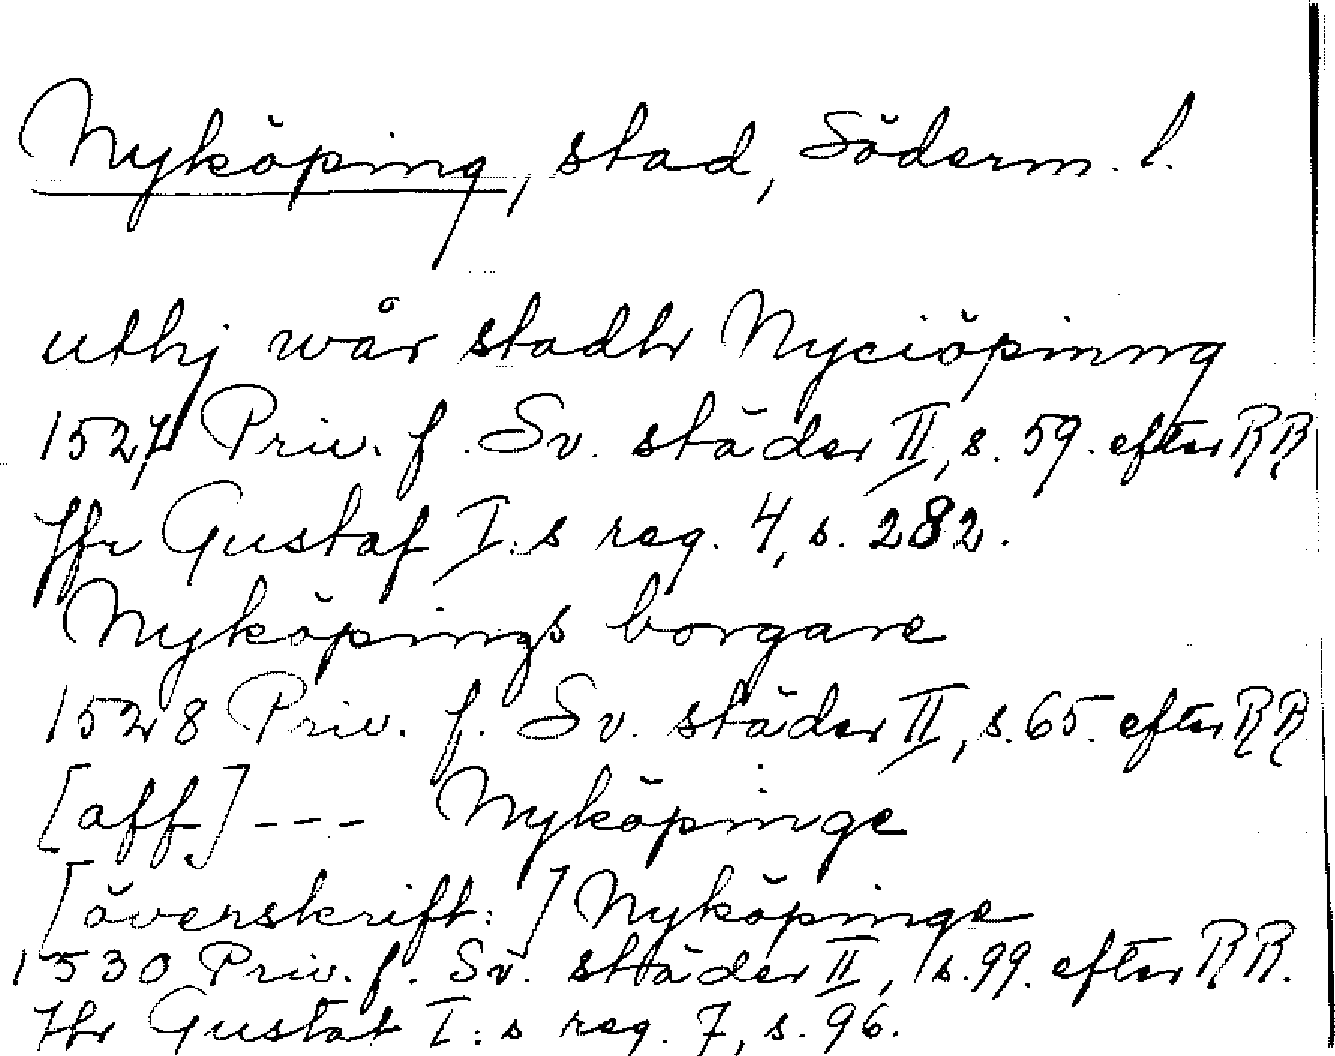 Nyköping, stad, Söderm. l.
uthj wår stadh Nyciöpinng
1527 Priv. f. Sv. städer II, s. 59. efter RR
Jfr Gustaf I:s reg. 4, s. 282.
Nyköpings borgare
1528 Priv. f. Sv. städer II, s. 65. efter RR
[aff] --- Nyköpinge
[överskrift:] Nyköpinge
1530 Priv. f. Sv. städer II, s. 99. efter RR.
Jfr Gustaf I:s reg. 7, s. 96.